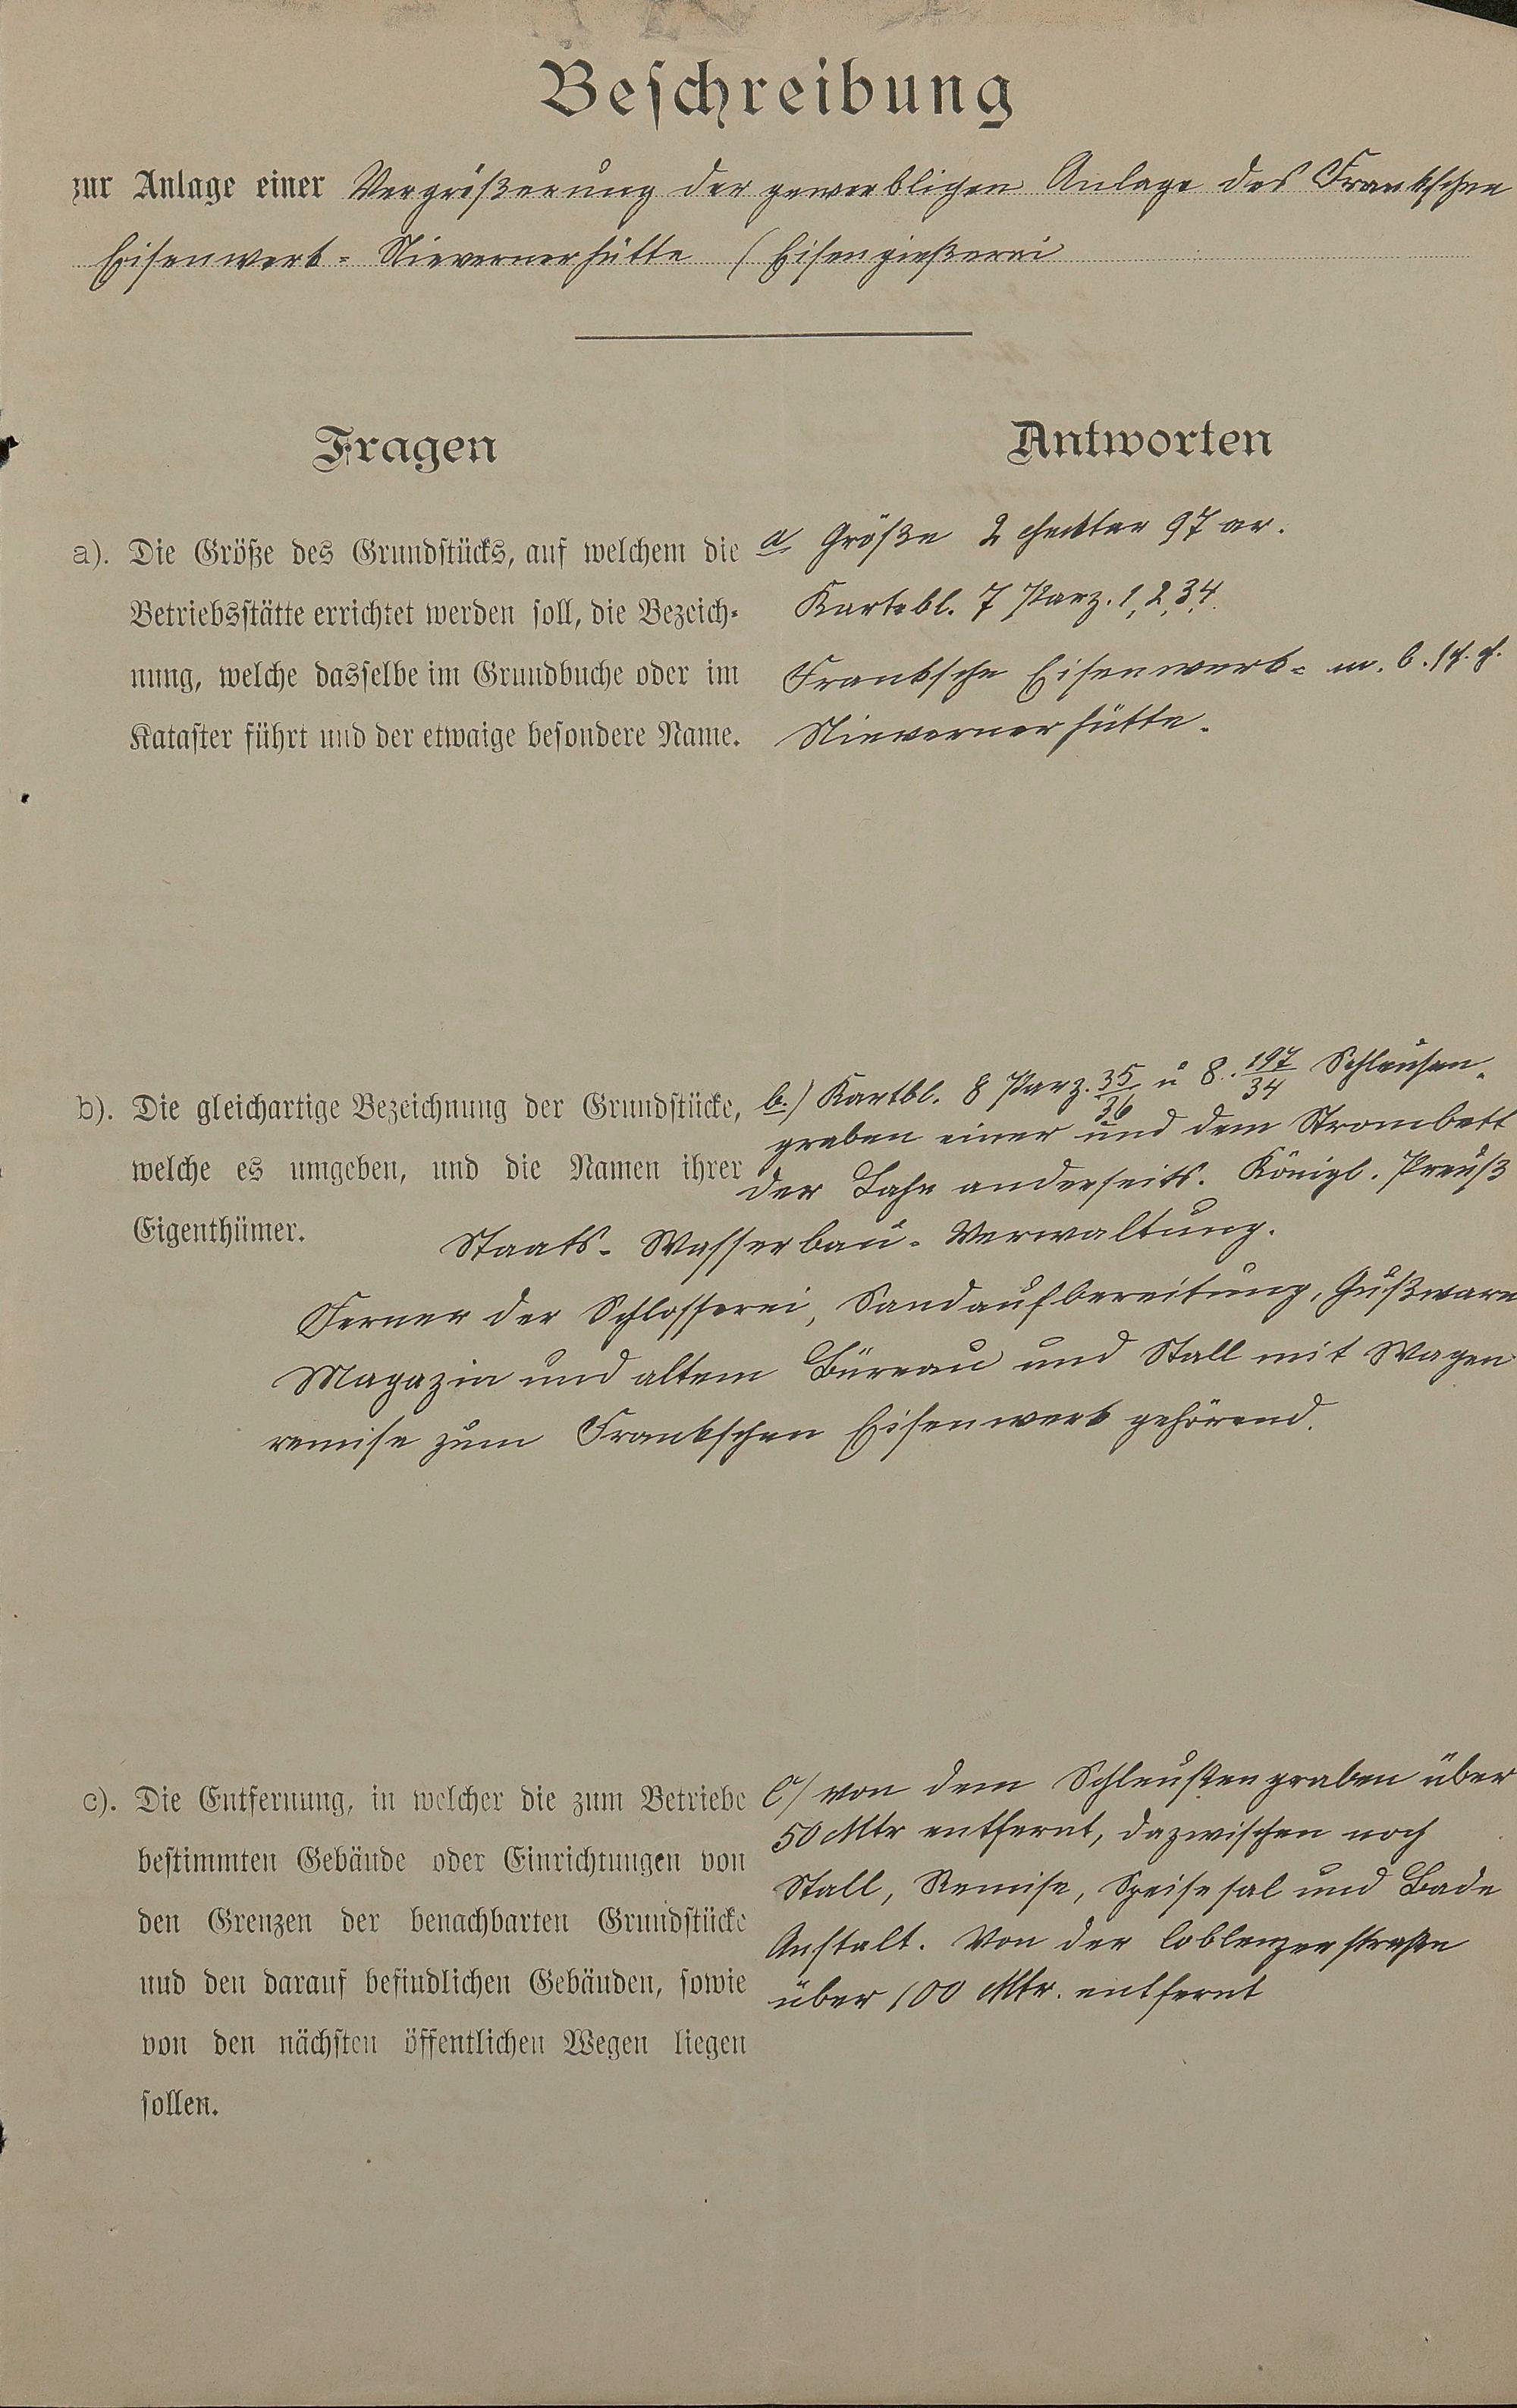 Beschreibung
zur Anlage einer Vergrößerung der gewerblichen Anlage des Frankschen
Eisenwerk - Nievernerhütte (Eisengießerei
Fragen
Antworten
a). Die Größe des Grundstücks, auf welchem die
Betriebsstätte errichtet werden soll, die Bezeich-
nung, welche dasselbe im Grundbuche oder im
Kataster führt und der etwaige besondere Name.
a, Größe 2 Hecktar 97 ar.
Kartebl. 7 Parz. 1, 2, 3, 4.
Franksche Eisenwerk- m. b.
Nievernerhütte.
b). Die gleichartige Bezeichnung der Grundstücke,
welche es umgeben, und die Namen ihrer
Eigenthümer.
b.) Kartbl. 8 Parz. 35/36 u 8. 197/34 Schleusen-
graben einer und dem Strombett
der Lahn anderseits. Königl. Preuß
Staats- Wasserbau- Verwaltung.
Ferner der Schlosserei, Sandaufbereitung, Gußware
Magazin und altem Büreau und Stall mit Wagen
remise zum Frankschen Eisenwerk gehörend.
c). Die Entfernung, in welcher die zum Betriebe
bestimmten Gebäude oder Einrichtungen von
den Grenzen der benachbarten Grundstücke
und den darauf befindlichen Gebäuden, sowie
von den nächsten öffentlichen Wegen liegen
sollen.
c/ von dem Schleußengraben über
50 Mtr entfernt, dazwischen noch
Stall, Remise, Speisesal und Bade
Anstalt. Von der Coblenzerstraße
über 100 Mtr. entfernt